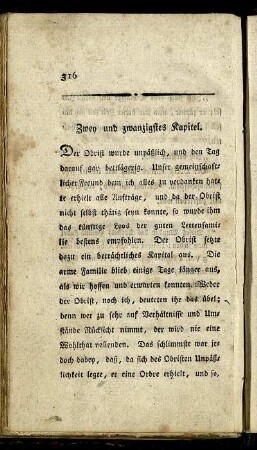 316
Zwey und zwanzigstes Kapitel.
Der Obrist wurde unpäßlich, und den Tag
darauf gar bettlägerig. Unser gemeinschaft-
licher Freund dem ich alles zu verdanken hat-
te erhielt alle Aufträge, und da der Obrist
nicht selbst thätig seyn konnte, so wurde ihm
das künftige Loos der guten Lettenfami-
lie bestens empfohlen. Der Obrist setzte
dazu ein beträchtliches Kapital aus. Die
arme Familie blieb einige Tage länger aus,
als wir hoffen und erwarten konnten. Weder
der Obrist, noch ich, deuteten ihr das übel;
denn wer zu sehr auf Verhältnisse und Um-
stände Rücksicht nimmt, der wird nie eine
Wohlthat vollenden. Das schlimmste war je-
doch dabey, daß, da sich des Obristen Unpäß-
lichkeit legte, er eine Ordre erhielt, und so,